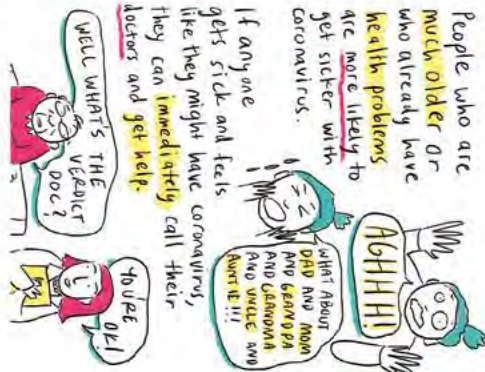 People who are
much older or
who already have
health problems
are more likely to
get sicker with
coronavirus.
AGHHH!
WHAT ABOUT
DAD AND MOM
AND GRANDPA
AND GRANDMA
AND UNCLE AND
If anyone
gets sick and feels
like they might have coronavirus,
they can immediately call their
doctors and get help.
WELL WHAT'S THE
VERDICT
DOC?
YOU'RE
OK!